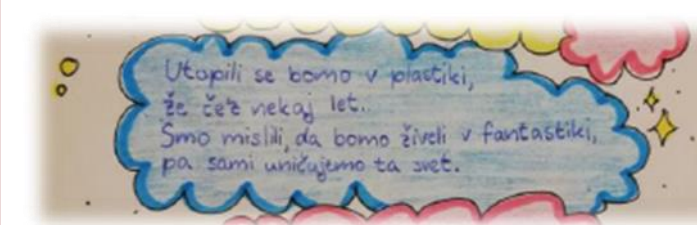 Utopili se bomo v plastiki,
že čez nekaj let..
Smo mislili, da bomo živeli v fantastiki,
pa sami uničujemo ta svet.